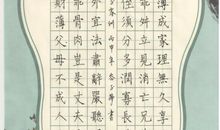 薄成家理無久享
乖舛立見消亡兄
須分多潤寡長
外宜法肅辭嚴聽
乖骨肉豈是丈夫
財薄父母不成人